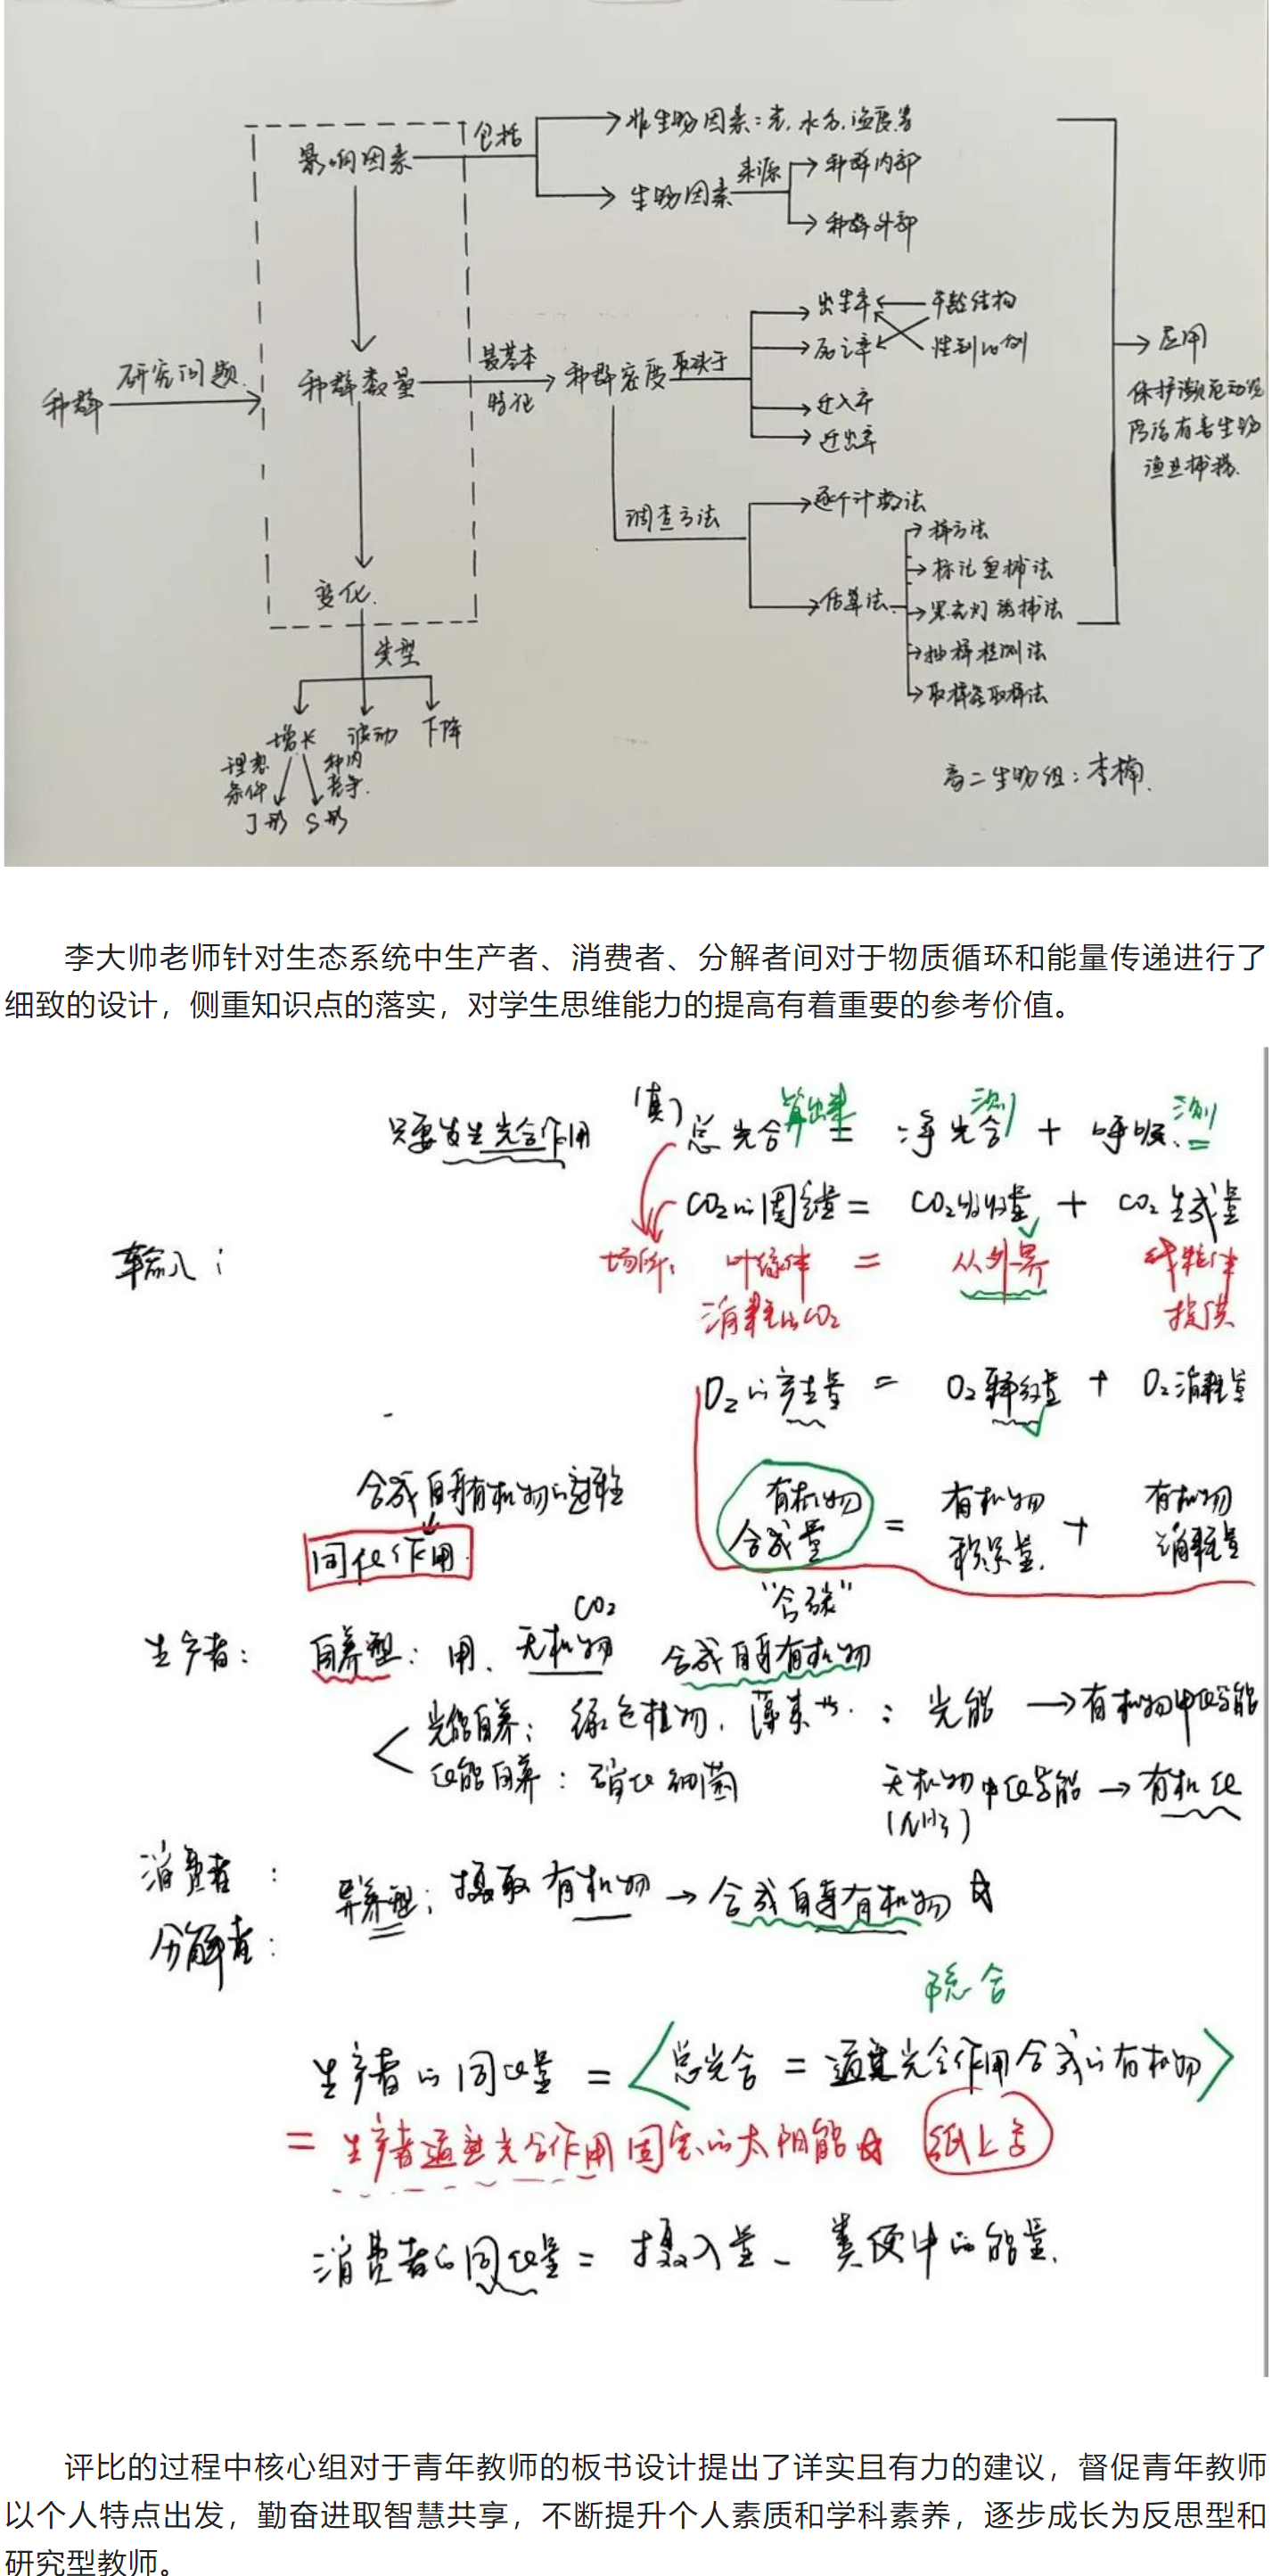 影响因素 包括 非生物因素：光、水分、温度等
生物因素 来源 种群内部
种群外部
种群 研究问题
种群数量 最基本特征 种群密度 取决于
出生率 年龄结构
死亡率 性别比例
迁入率
迁出率
应用
保护濒危动物
防治有害生物
渔业捕捞
调查方法
逐个计数法
估算法
样方法
标记重捕法
黑光灯诱捕法
抽样检测法
取样器取样法
变化
类型
增长 波动 下降
理想条件 种内竞争
J形 S形
高二生物组：李楠
李大帅老师针对生态系统中生产者、消费者、分解者间对于物质循环和能量传递进行了
细致的设计，侧重知识点的落实，对学生思维能力的提高有着重要的参考价值。
算出来 测 测
只要发生光合作用 (真) 总光合 = 净光合 + 呼吸
CO₂的固定量 = CO₂吸收量 + CO₂生成量
输入：
场所：叶绿体 = 从外界 线粒体
消耗的CO₂ 提供
O₂的产生量 = O₂释放量 + O₂消耗量
合成自身有机物的过程
同化作用
有机物合成量 = 有机物积累量 + 有机物消耗量
“含碳”
CO₂
生产者： 自养型：用、无机物 合成自身有机物
光能自养：绿色植物，藻类等：光能 → 有机物中化学能
化能自养：硝化细菌 无机物中化学能 → 有机化
(NH₃)
消费者：
分解者：
异养型：摄取有机物 → 合成自身有机物
总合
生产者的同化量 = <总光合 = 通过光合作用合成的有机物>
= 生产者通过光合作用固定的太阳能 纸上写
消费者的同化量 = 摄入量 - 粪便中的能量.
评比的过程中核心组对于青年教师的板书设计提出了详实且有力的建议，督促青年教师
以个人特点出发，勤奋进取智慧共享，不断提升个人素质和学科素养，逐步成长为反思型和
研究型教师。